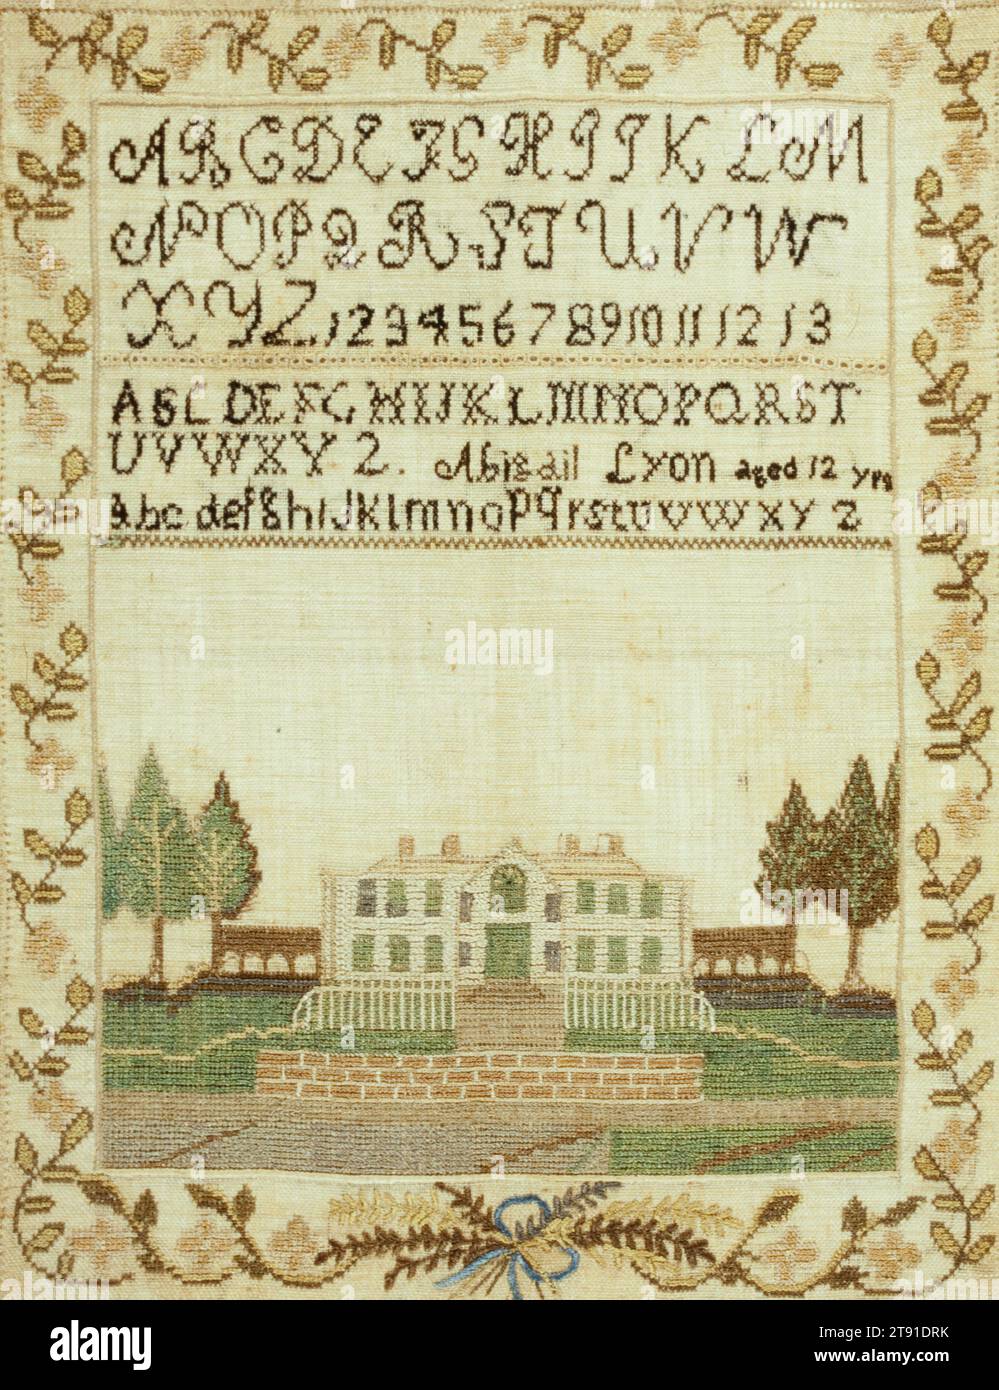 A B C D E F G H I J K L M
N O P Q R S T U V W
X Y Z 1 2 3 4 5 6 7 8 9 10 11 12 13
A B C D E F G H I J K L M N O P Q R S T
U V W X Y Z. Abigail Lyon aged 12 yrs
A b c d e f g h i J k l m n o p q r s t u v w x y z
alamy
alamy
Image ID: T91DRK
www.alamy.com